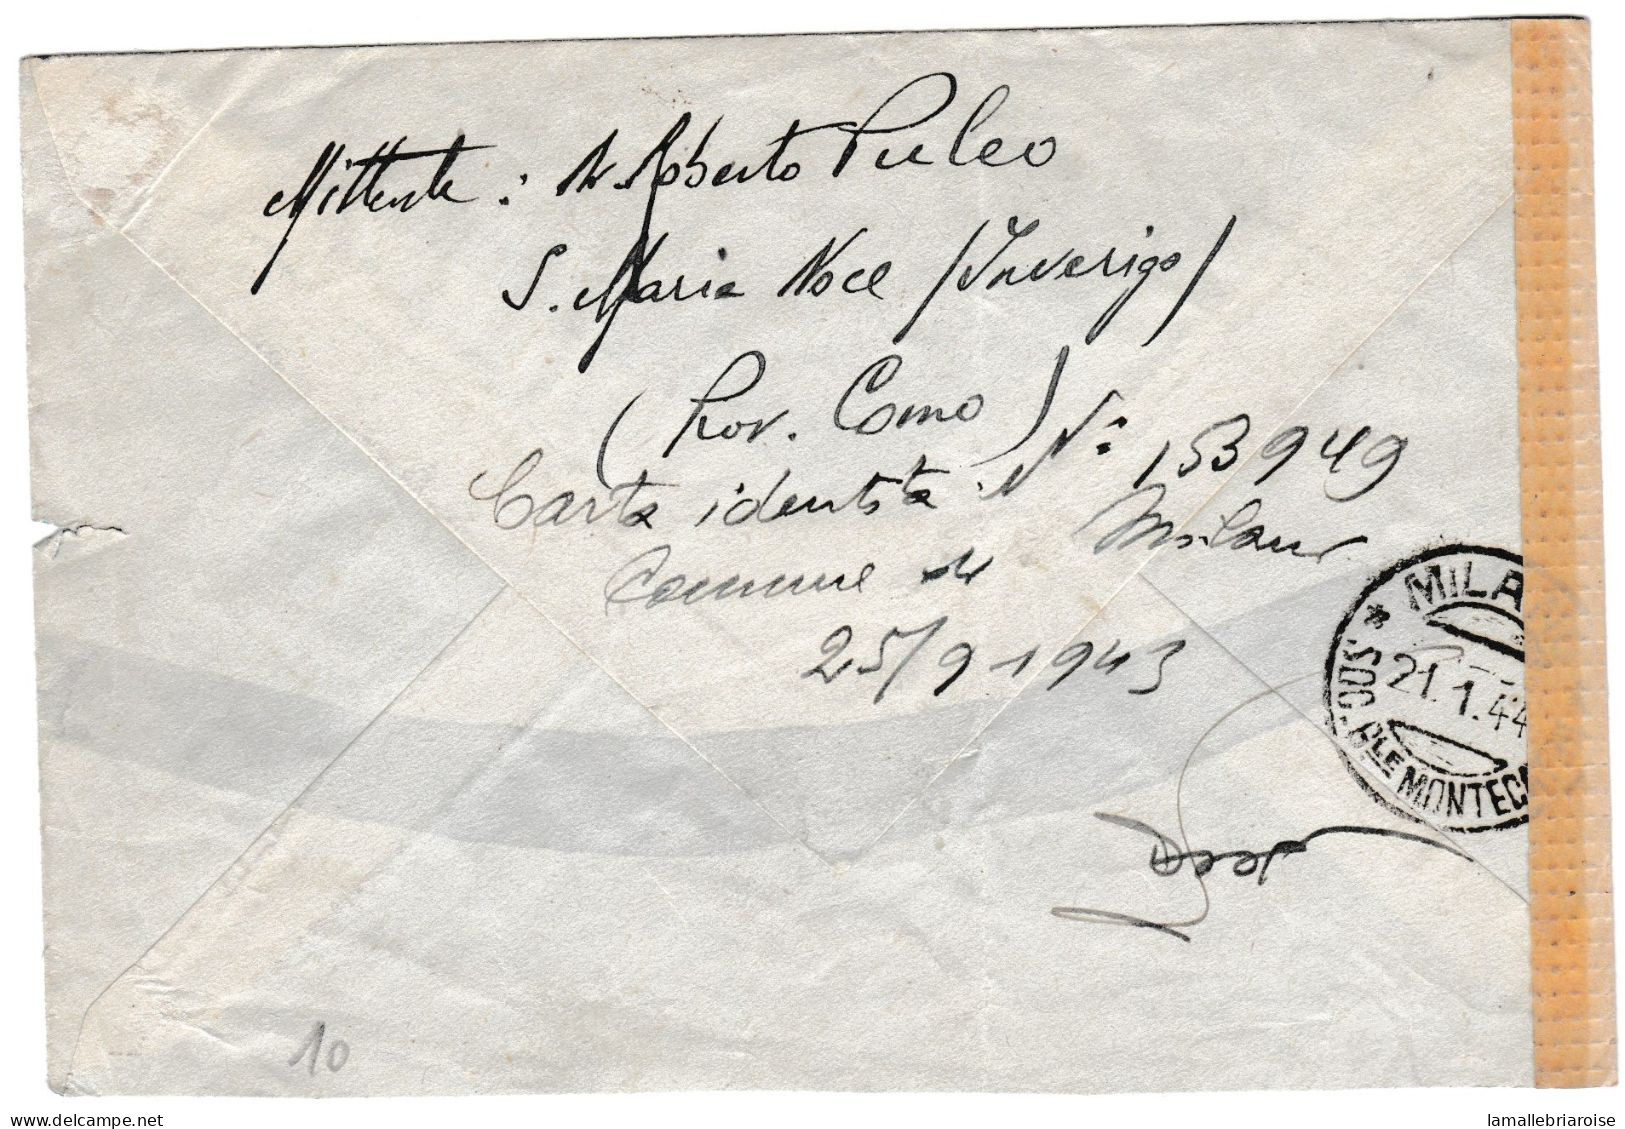 Mittente : Dr. Roberto Puleo
S. Maria Noce /Inverigo/
(Prov. Como)
Carta identità N° 153949
Comune di Milano
25/9 1943
* MILA
21.1.44
SUCC. PLE MONTEC
10
delcampe.net
lamallebriaroise